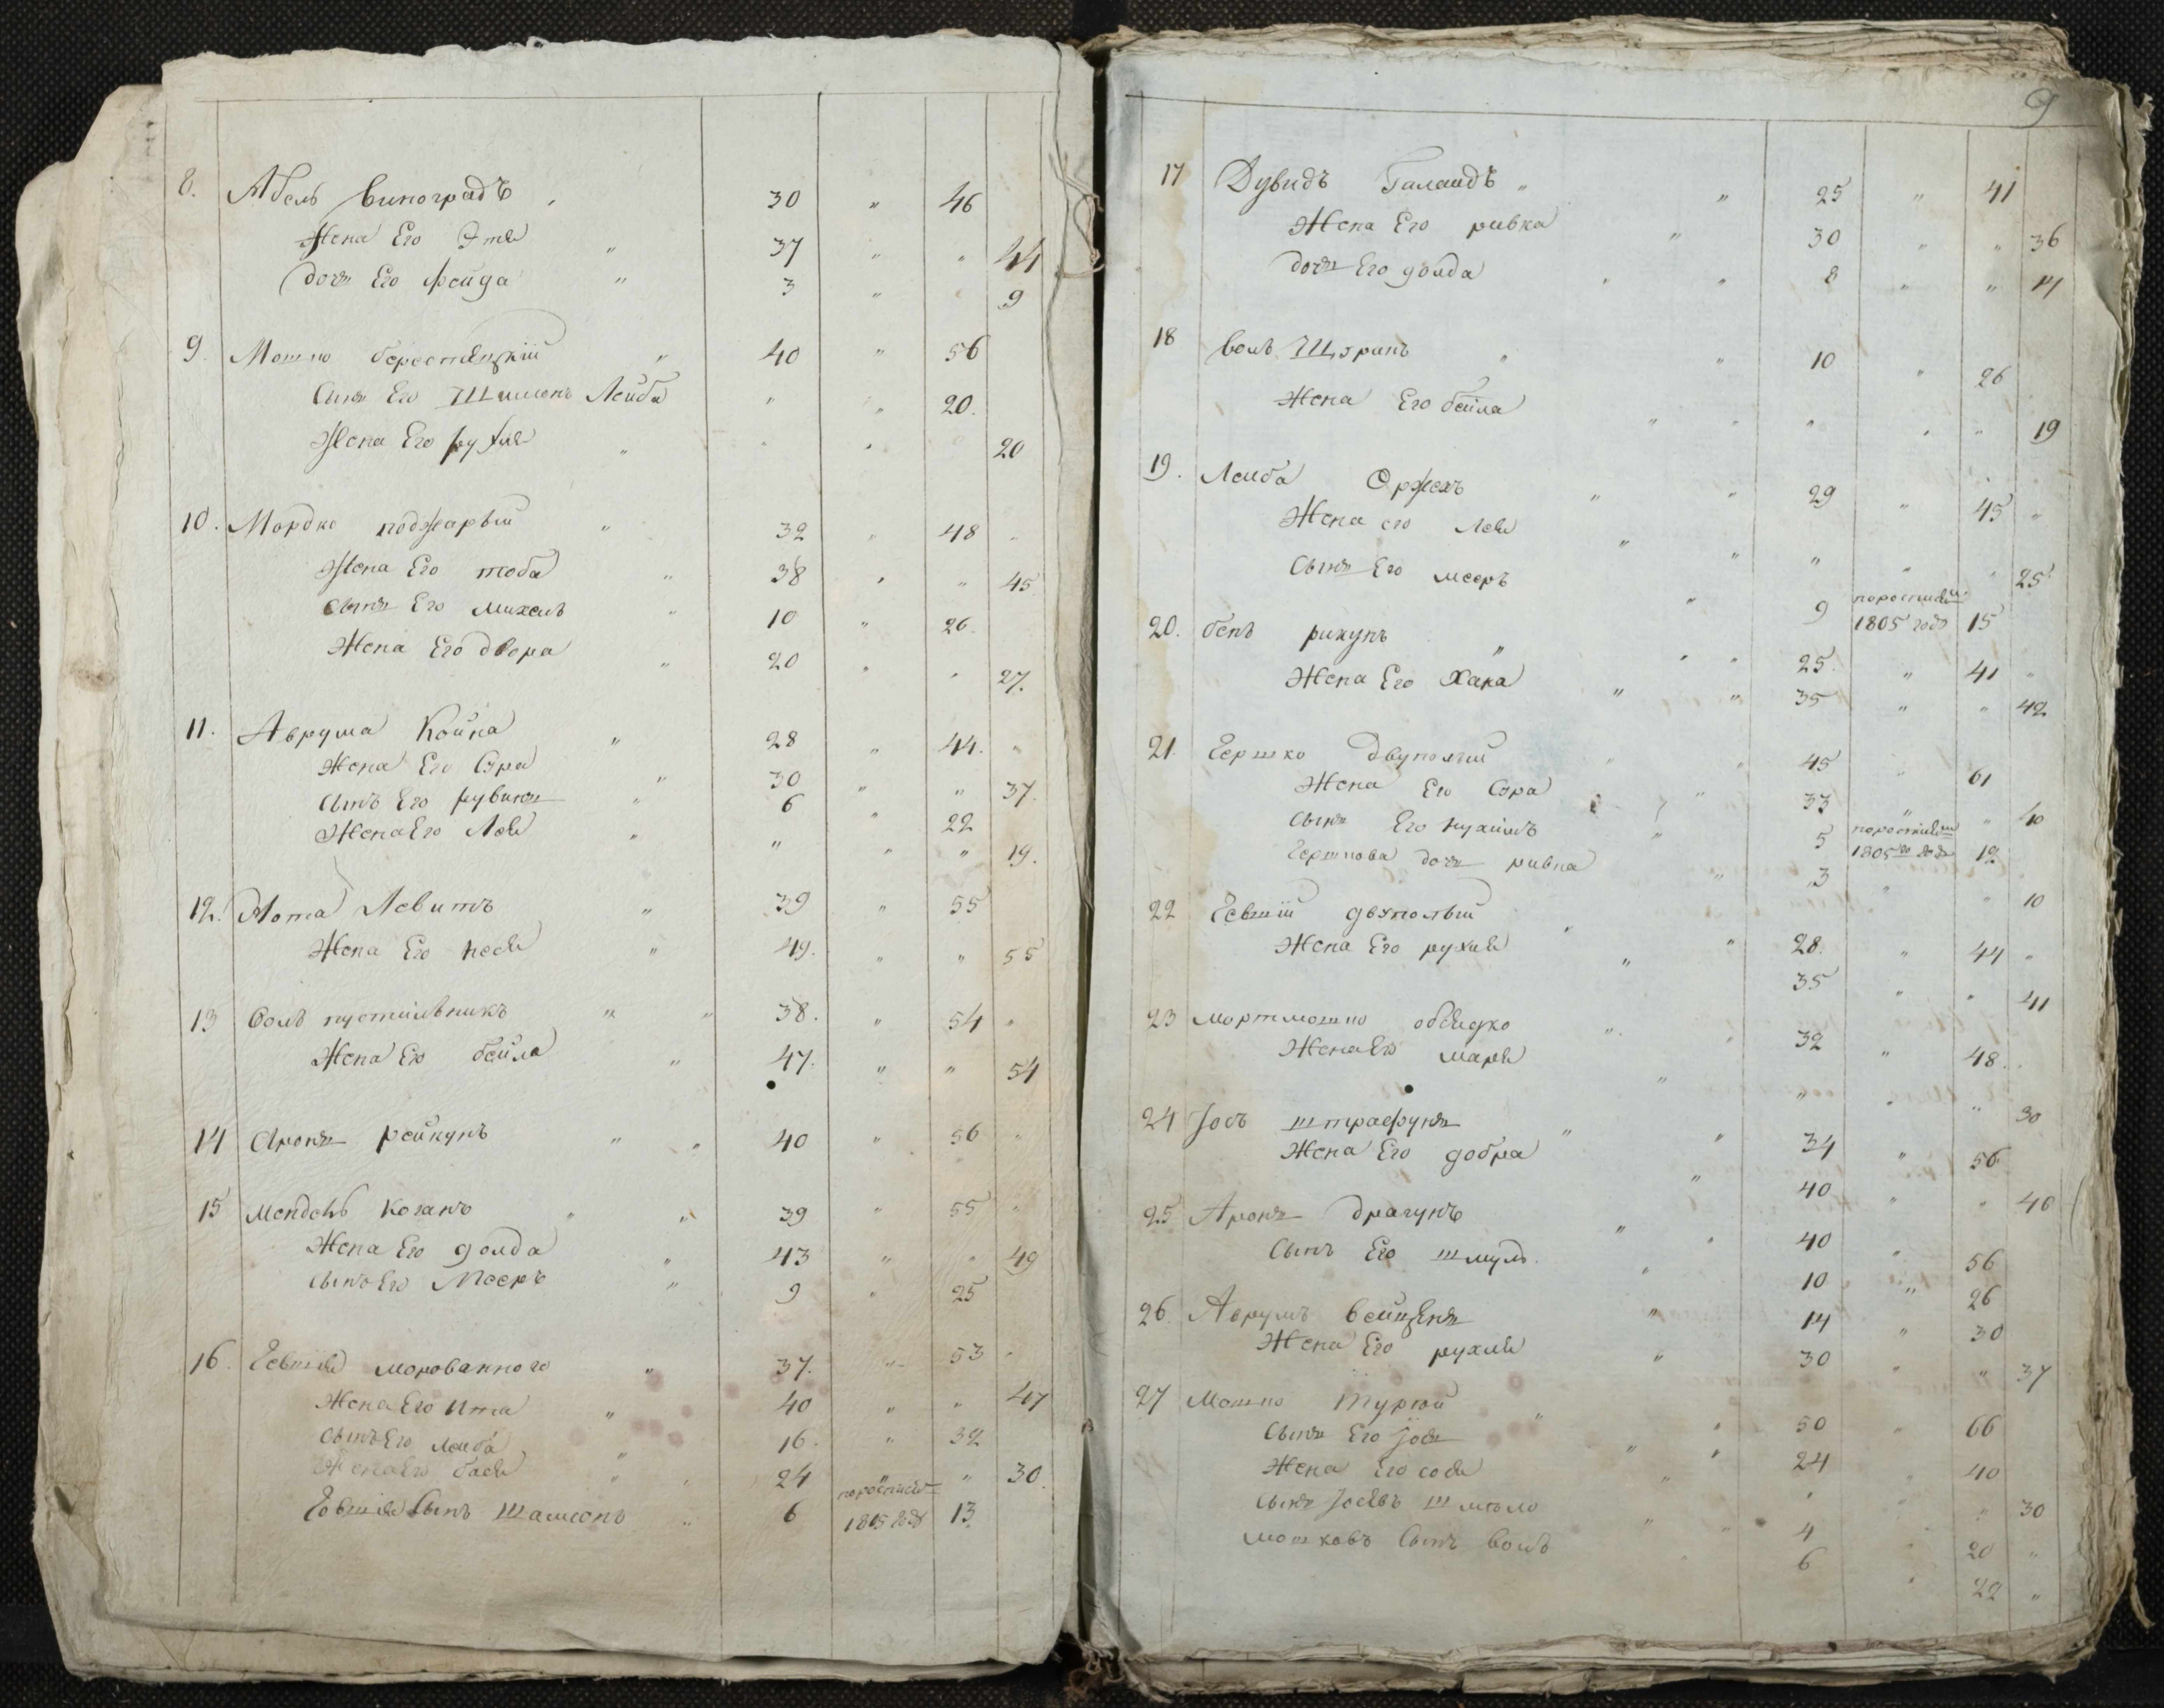 8. Абель Виноградъ „ 30 „ 46
Жена Его Этля „ 37 „ „ 44
дочь Его фейга „ 3 „ „ 9
9. Мошко берестецкій „ 40 „ 56
Сынъ Его Шимонъ Лейба „ „ 20.
Жена Его рухля „ „ „ 20
10. Мордко поджарый „ 32 „ 48 „
Жена Его тоба „ 38 „ „ 45
Сынъ Его михель „ 10 „ 26
Жена Его двора „ 20 „ „ 27.
11. Аврума Койна „ 28 „ 44. „
Жена Его Сура „ 30 „ „ 37.
Сынъ Его рувинъ „ 6 „ 22
Жена Его Лея „ „ „ „ 19.
12. Нота Левитъ „ 39 „ 55
Жена Его неся „ 49. „ „ 55
13 Волъ пустильникъ „ „ 38. „ 54 „
Жена Его бейла „ 47. „ „ 54
14 Аронъ рейкунъ „ „ 40 „ 56 „
15 Мендель коганъ „ „ 39 „ 55 „
Жена Его голда „ 43 „ „ 49
Сынъ Его Мееръ „ 9 „ 25
16. Евшія морованного „ 37. „ 53 „
Жена Его Ита „ 40 „ „ 47
Сынъ Его лейба „ 16. „ 32
Жена Его бася „ „ 24 „ „ 30.
Евшія Сынъ Шамсонъ „ 6 1805 года 13
9
17 Дувидъ Галандъ „ „ 25 „ 41
Жена Его ривка „ 30 „ „ 36
дочь Его голда „ „ 8 „ „ 14
18 Волъ „ „ 10 „ 26
Жена Его бейла „ „ „ „ „ 19
19. Лейба Оржехъ „ „ 29 „ 45 „
Жена его Лея „ „ „ „ „ 25
Сынъ Его мееръ „ 9 1805 года 15
20. бенъ рикунъ „ „ „ 25. „ 41 „
Жена Его Хана „ „ 35 „ „ 42
21. Гершко двуполый „ „ 45 „ 61
Жена Его Сура „ 33 „ „ 40
Сынъ Его нухимъ „ 5 1805го года 12
Гершкова дочь ривка „ 3 „ „ 10
22 Евшій двуполый „ „ 28. „ 44 „
Жена Его рухля „ 35 „ „ 41
23 мортмошко „ „ 32 „ 48.
Жена Его маря „ „ „ „ 30
24 Іосъ штрафунъ „ „ 34 „ 56
Жена Его добра „ 40 „ „ 46
25 Аронъ драгунъ „ „ 40 „ 56
Сынъ Его шмуль „ 10 „ 26
26. Аврумъ вейцень „ 14 „ 30
Жена Его рухля „ 30 „ „ 37
27 Мошко Турюй „ „ 50 „ 66
Сынъ Его Іося „ „ 24 „ 40
Жена Его сося „ „ „ „ 30
Сынъ Іосевъ шмоло „ „ 4 „ 20 „
мошковъ Сынъ Волъ „ 6 „ 22 „